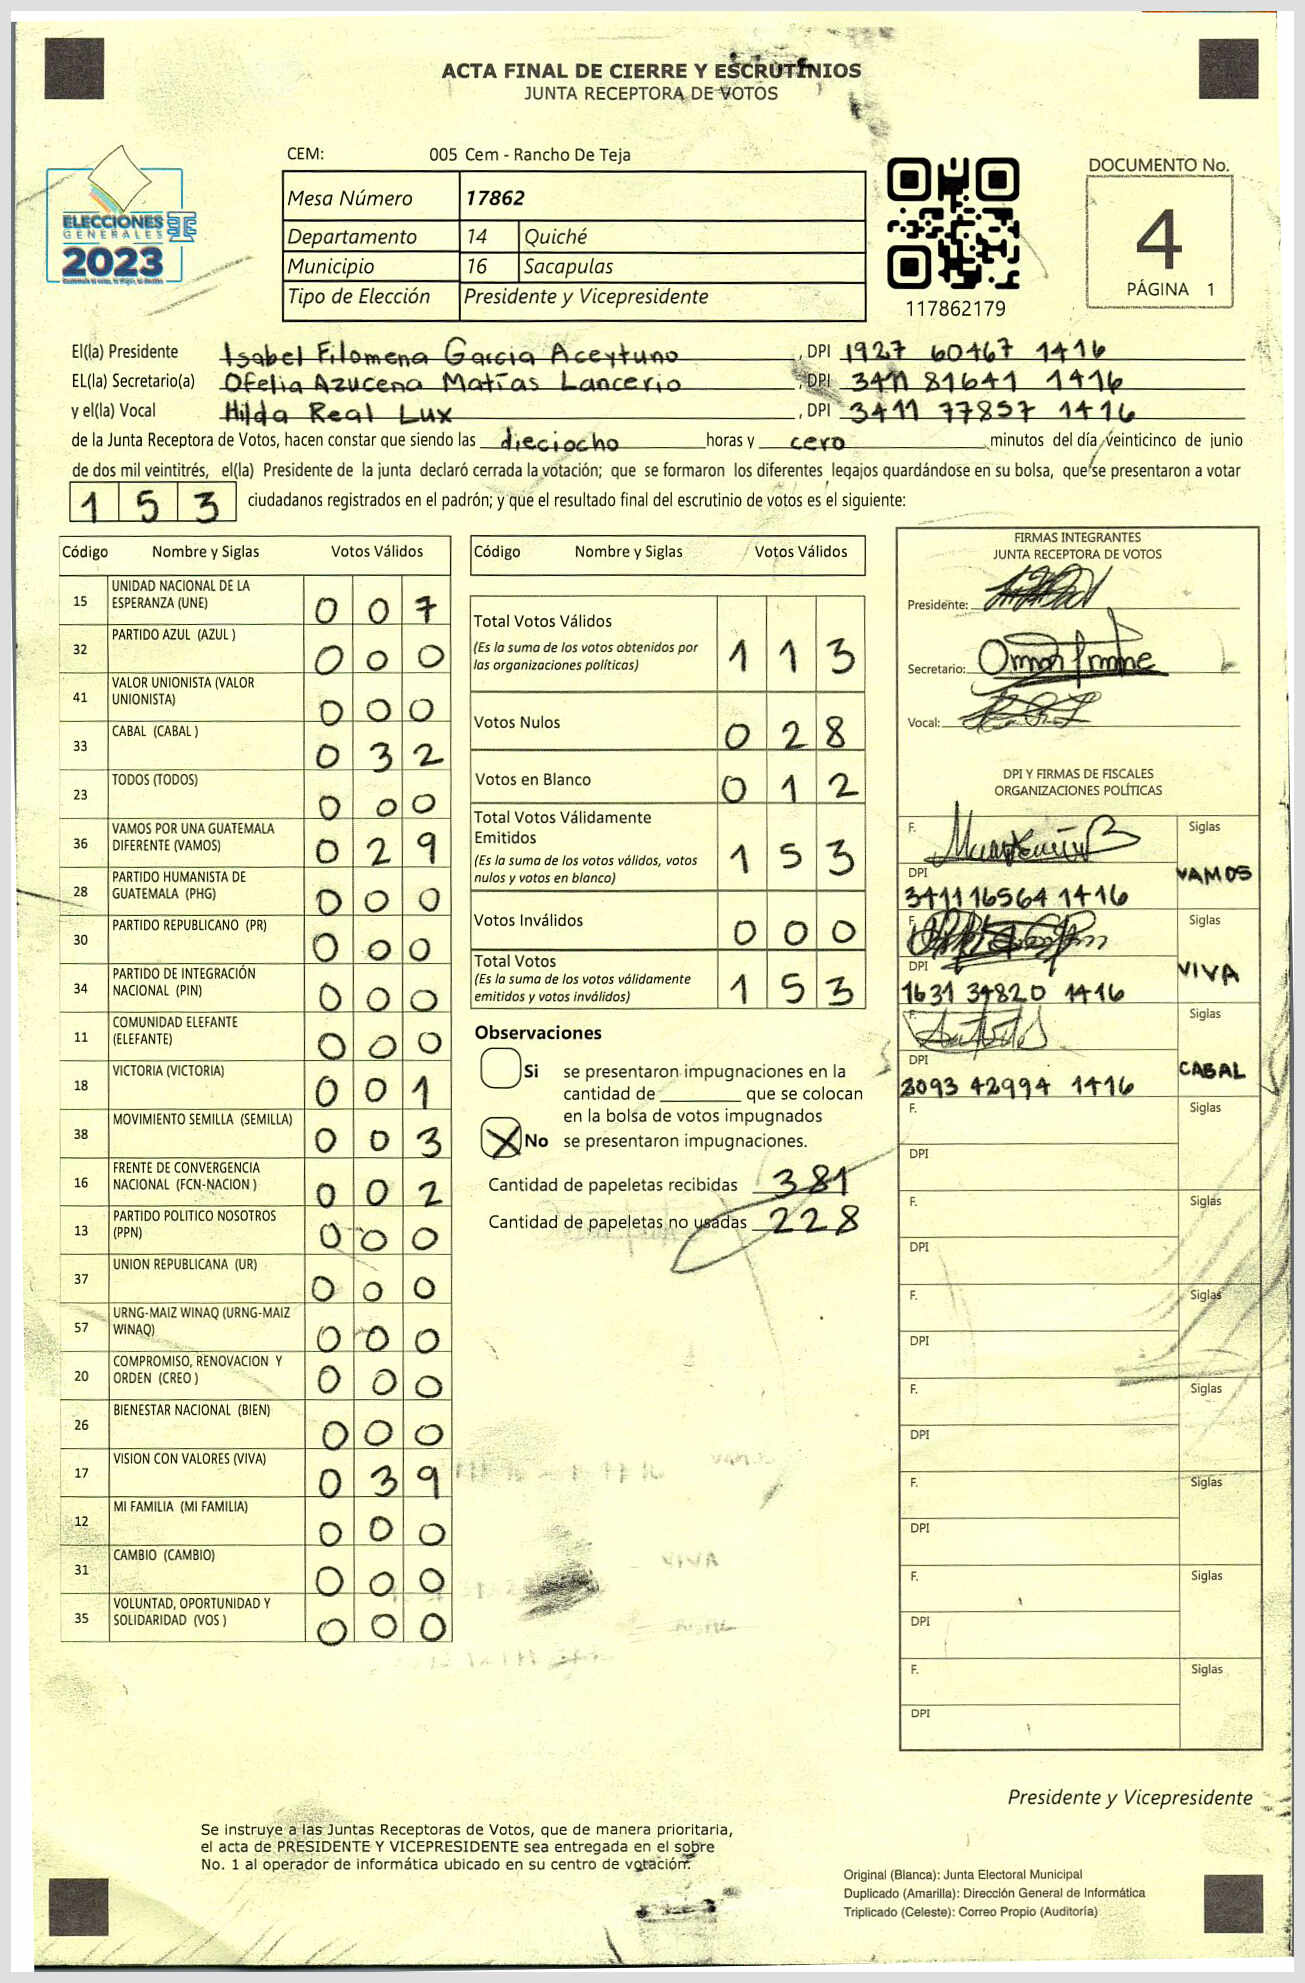 ACTA FINAL DE CIERRE Y ESCRUTINIOS
JUNTA RECEPTORA DE VOTOS
ELECCIONES
GENERALES
2023
CEM: 005 Cem - Rancho De Teja
Mesa Número 17862
Departamento 14 Quiché
Municipio 16 Sacapulas
Tipo de Elección Presidente y Vicepresidente
117862179
DOCUMENTO No.
4
PÁGINA 1
El(la) Presidente Isabel Filomena Garcia Aceytuno, DPI 1927 60467 1416
EL(la) Secretario(a) Ofelia Azucena Matías Lancerio, DPI 3411 81641 1416
y el(la) Vocal Hilda Real Lux, DPI 3411 77857 1416
de la Junta Receptora de Votos, hacen constar que siendo las dieciocho horas y cero minutos del día veinticinco de junio
de dos mil veintitrés, el(la) Presidente de la junta declaró cerrada la votación; que se formaron los diferentes legajos quardándose en su bolsa, que se presentaron a votar
153 ciudadanos registrados en el padrón; y que el resultado final del escrutinio de votos es el siguiente:
Código Nombre y Siglas Votos Válidos
15 UNIDAD NACIONAL DE LA
ESPERANZA (UNE) 0 0 7
32 PARTIDO AZUL (AZUL ) 0 0 0
41 VALOR UNIONISTA (VALOR
UNIONISTA) 0 0 0
33 CABAL (CABAL ) 0 3 2
23 TODOS (TODOS) 0 0 0
36 VAMOS POR UNA GUATEMALA
DIFERENTE (VAMOS) 0 2 9
28 PARTIDO HUMANISTA DE
GUATEMALA (PHG) 0 0 0
30 PARTIDO REPUBLICANO (PR) 0 0 0
34 PARTIDO DE INTEGRACIÓN
NACIONAL (PIN) 0 0 0
11 COMUNIDAD ELEFANTE
(ELEFANTE) 0 0 0
18 VICTORIA (VICTORIA) 0 0 1
38 MOVIMIENTO SEMILLA (SEMILLA) 0 0 3
16 FRENTE DE CONVERGENCIA
NACIONAL (FCN-NACION ) 0 0 2
13 PARTIDO POLITICO NOSOTROS
(PPN) 0 0 0
37 UNION REPUBLICANA (UR) 0 0 0
57 URNG-MAIZ WINAQ (URNG-MAIZ
WINAQ) 0 0 0
20 COMPROMISO, RENOVACION Y
ORDEN (CREO ) 0 0 0
26 BIENESTAR NACIONAL (BIEN) 0 0 0
17 VISION CON VALORES (VIVA) 0 3 9
12 MI FAMILIA (MI FAMILIA) 0 0 0
31 CAMBIO (CAMBIO) 0 0 0
35 VOLUNTAD, OPORTUNIDAD Y
SOLIDARIDAD (VOS ) 0 0 0
Código Nombre y Siglas Votos Válidos
Total Votos Válidos
(Es la suma de los votos obtenidos por
las organizaciones políticas) 1 1 3
Votos Nulos 0 2 8
Votos en Blanco 0 1 2
Total Votos Válidamente
Emitidos
(Es la suma de los votos válidos, votos
nulos y votos en blanco) 1 5 3
Votos Inválidos 0 0 0
Total Votos
(Es la suma de los votos válidamente
emitidos y votos inválidos) 1 5 3
Observaciones
Si se presentaron impugnaciones en la
cantidad de ________ que se colocan
en la bolsa de votos impugnados
X No se presentaron impugnaciones.
Cantidad de papeletas recibidas 381
Cantidad de papeletas no usadas 228
FIRMAS INTEGRANTES
JUNTA RECEPTORA DE VOTOS
Presidente:
Secretario:
Vocal:
DPI Y FIRMAS DE FISCALES
ORGANIZACIONES POLÍTICAS
F. Siglas
DPI VAMOS
3411 16564 1416
F. Siglas
DPI VIVA
1631 34820 1416
F. Siglas
DPI CABAL
2093 42994 1416
F. Siglas
DPI
F. Siglas
DPI
F. Siglas
DPI
F. Siglas
DPI
F. Siglas
DPI
F. Siglas
DPI
F. Siglas
DPI
Presidente y Vicepresidente
Se instruye a las Juntas Receptoras de Votos, que de manera prioritaria,
el acta de PRESIDENTE Y VICEPRESIDENTE sea entregada en el sobre
No. 1 al operador de informática ubicado en su centro de votación.
Original (Blanca): Junta Electoral Municipal
Duplicado (Amarilla): Dirección General de Informática
Triplicado (Celeste): Correo Propio (Auditoría)